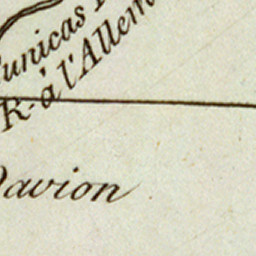 unicas
R. à l'Allem
avion